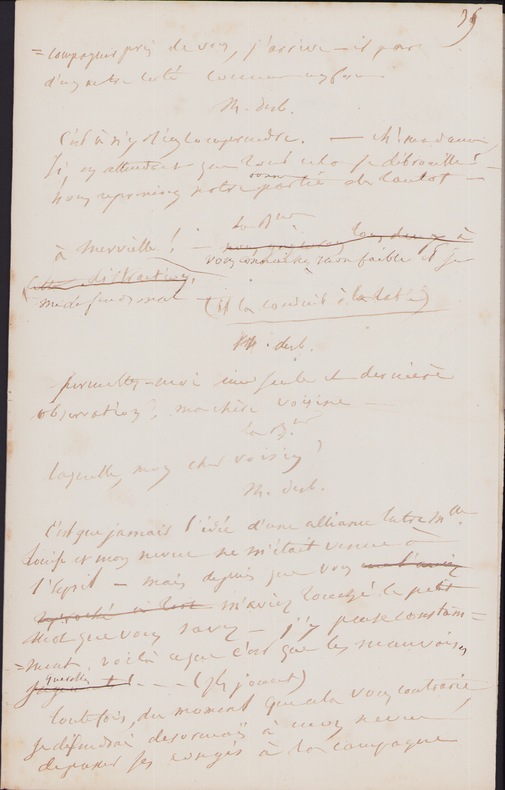 35
= compagner près de vous, j'arrive — il part
d'un autre coté
M. derb.
C'est à n'y rien comprendre. — ah! madame,
si, en attendant que tout cela se débrouille! —
nous reprenions notre partie de tantot —
La B.nne
à merveille! — tous deux à
vous connaissez mon faible et je
cette distraction,
me défens mal
(il la conduit à la table)
M. derb.
permettez-moi une seule et dernière
observation, ma chère voisine —
La B.nne
laquelle, mon cher voisin?
M. derb.
C'est que jamais l'idée d'une alliance entre Mlle
Louise et mon neveu ne m'était venue à
l'esprit — mais depuis que vous
m'aviez touché le petit
mot que vous savez — j'y pense constam =
= ment. voilà ce que c'est que les mauvaises
querelles
- - - (ils jouent)
toutefois, du moment que cela vous contrarie
je défendrai desormais à mon neveu
de passer ses congés à la campagne